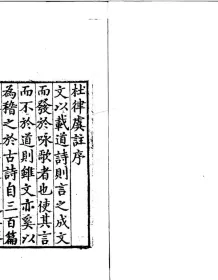 杜律虞註序
文以載道詩則言之成文
而發於咏歌者也使其言
而不於道則雖文亦奚以
為稽之於古詩自三百篇